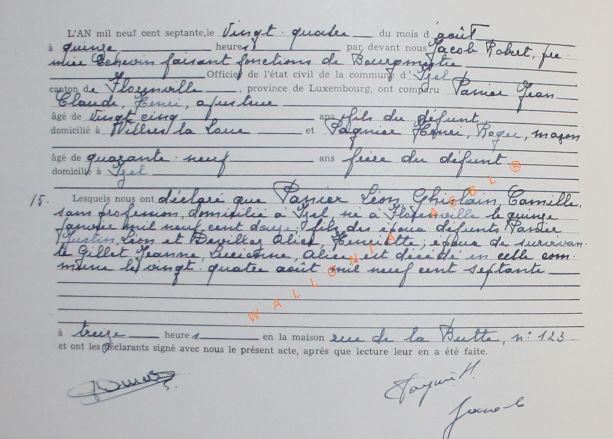 L'AN mil neuf cent septante, le Vingt-quatre du mois d'août
à quinze heures par devant nous Jacob Robert, pre-
mier Echevin faisant fonctions de Bourgmestre
Officier de l'état civil de la commune d'Izel
canton de Florenville, province de Luxembourg, ont comparu Panier Jean
Claude, Henri, ajusteur
âgé de vingt cinq ans fils du défunt
domicilié à Villers la Loue et Henri, Roger, maçon
âgé de quarante-neuf ans frère du défunt
domicilié à Izel
15. Lesquels nous ont déclaré que Panier Léon, Ghislain, Camille,
sans profession, domicilié à Izel, né à Florenville le quinze
janvier mil neuf cent douze, fils des époux défunts Panier
Justin Léon et Alice, Henriette; époux de survivan-
te Gillet Jeanne, Lucienne, Alice est décédé en cette com-
mune le vingt-quatre août mil neuf cent septante
à treize heures en la maison rue de la Butte, n° 123
et ont les déclarants signé avec nous le présent acte, après que lecture leur en a été faite.
Jacob
WALLONIA ASBL ®